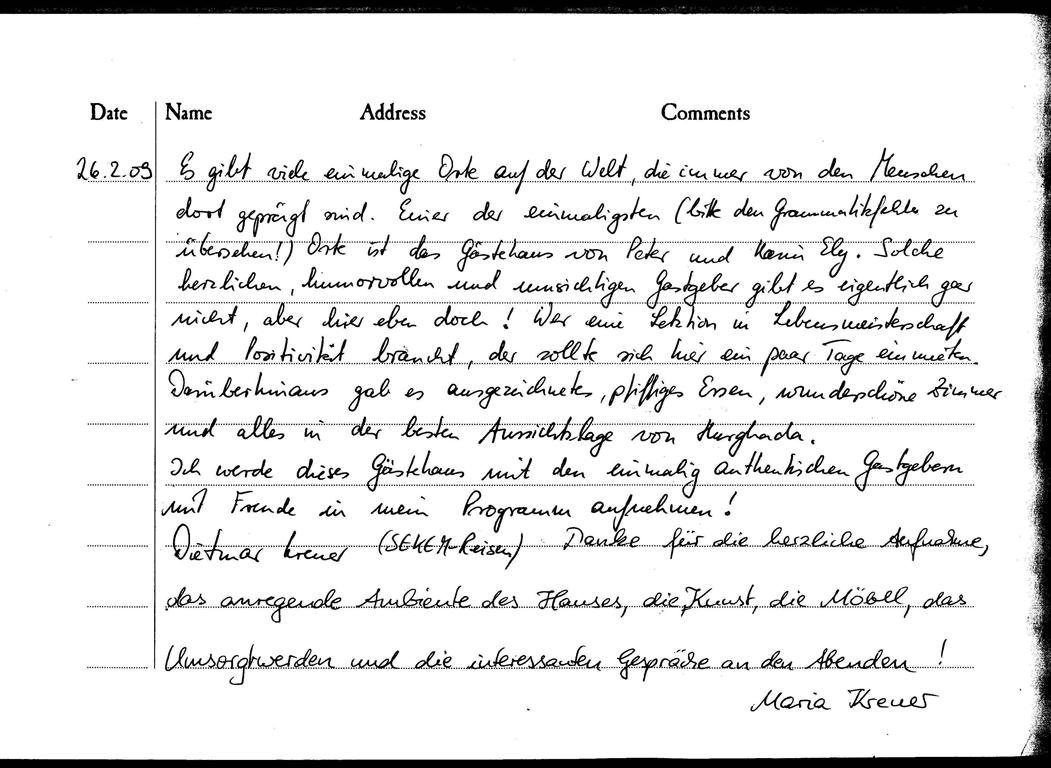 Date Name Address Comments
26.2.09 Es gibt viele einmalige Orte auf der Welt, die immer von den Menschen
dort geprägt sind. Einer der einmaligsten (bitte den Grammatikfehler zu
übersehen!) Orte ist das Gästehaus von Peter und Karin Ely. Solche
herzlichen, humorvollen und umsichtigen Gastgeber gibt es eigentlich gar
nicht, aber hier eben doch! Wer eine Lektion in Lebensmeisterschaft
und Positivität braucht, der sollte sich hier ein paar Tage einmieten.
Darüberhinaus gab es ausgezeichnetes, pfiffiges Essen, wunderschöne Zimmer
und alles in der besten Aussichtslage von Hurghada.
Ich werde dieses Gästehaus mit den einmalig authentischen Gastgebern
mit Freude in mein Programm aufnehmen!
Dietmar Kreuer (SEKEM-Reisen) Danke für die herzliche Aufnahme,
das anregende Ambiente des Hauses, die Kunst, die Möbel, das
Umsorgtwerden und die interessanten Gespräche an den Abenden!
Maria Kreuer